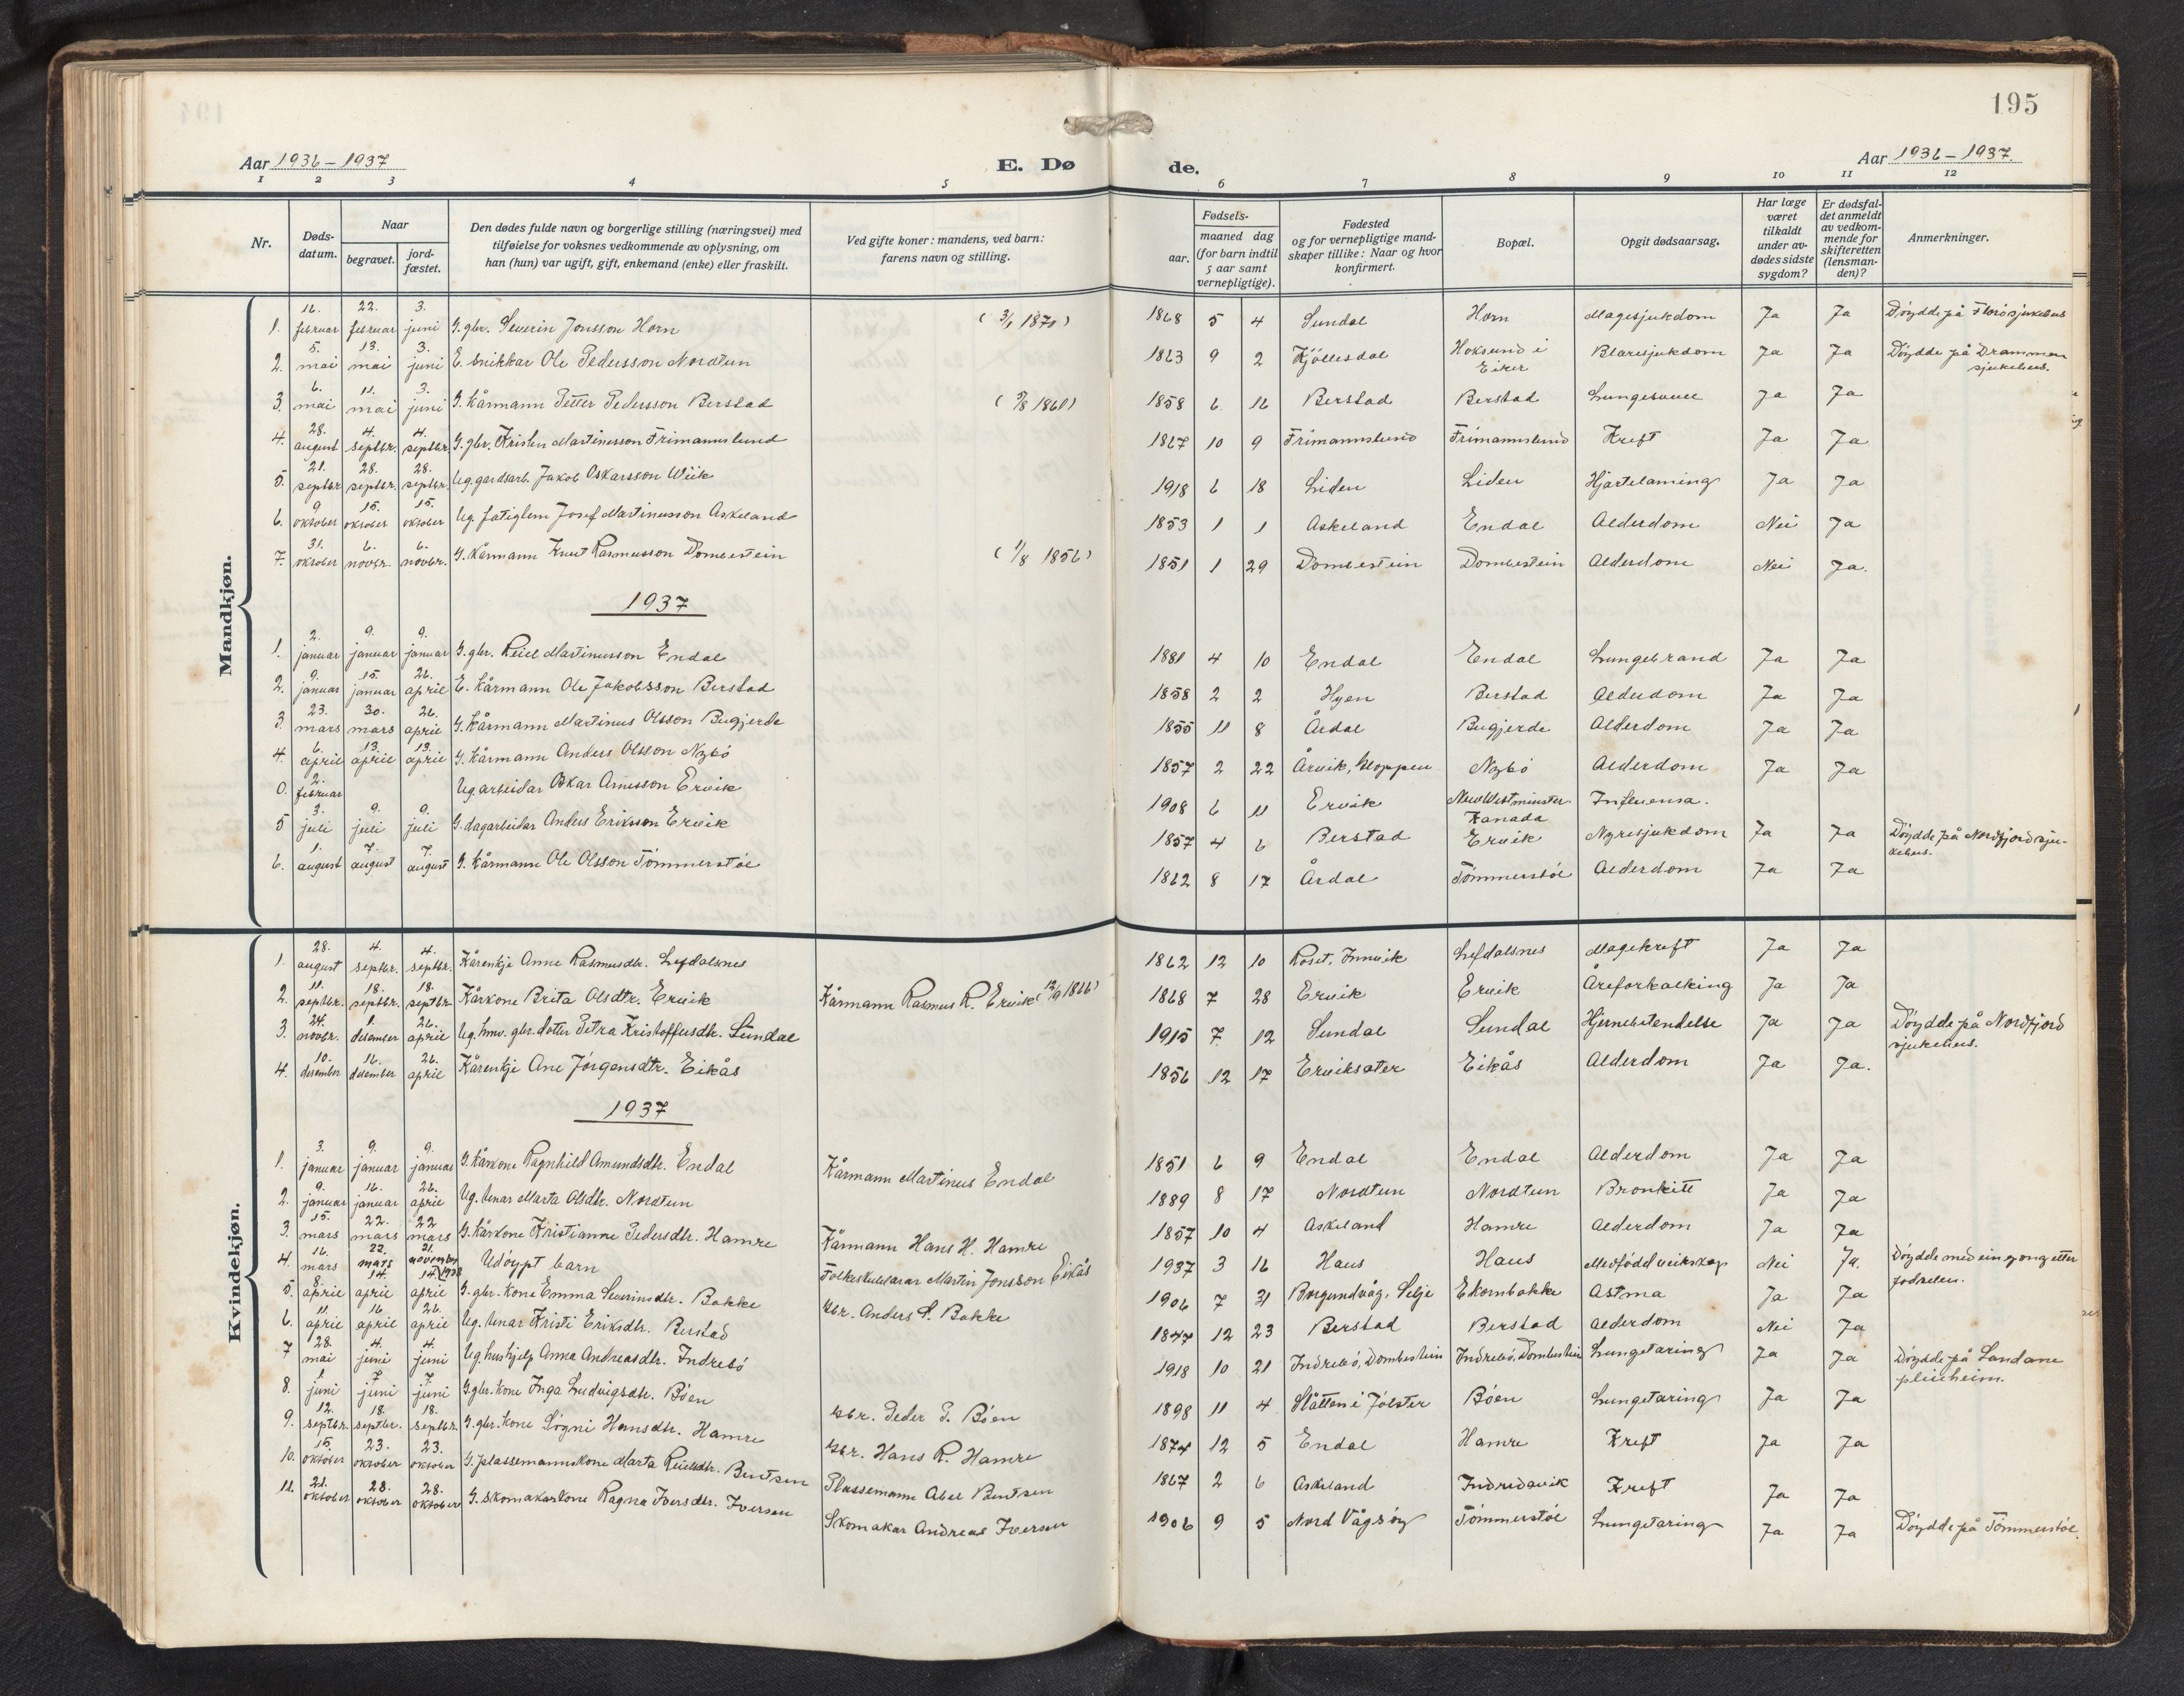 195
Aar 1936–1937
E. Dø
de.
Aar 1936–1937.
1 2 3 4 5 6 7 8 9 10 11 12
Nr.
Døds-
datum.
Naar
begravet.
jord-
fæstet.
Den dødes fulde navn og borgerlige stilling (næringsvei) med
tilføielse for voksnes vedkommende av oplysning, om
han (hun) var ugift, gift, enkemand (enke) eller fraskilt.
Ved gifte koner: mandens, ved barn:
farens navn og stilling.
Fødsels-
aar.
maaned dag
(for barn indtil
5 aar samt
vernepligtige).
Fødested
og for vernepligtige mand-
skaper tillike: Naar og hvor
konfirmert.
Bopæl.
Opgit dødsaarsag.
Har læge
været
tilkaldt
under av-
dødes sidste
sygdom?
Er dødsfal-
det anmeldt
av vedkom-
mende for
skifteretten
(lensman-
den)?
Anmerkninger.
Mandkjøn.
1. 16. februar 22. februar 3. juni G. gbr. Severin Jonsson Horn 1868 5 4 Sundal Horn Magesjukdom Ja Ja Döydde på Florö sjukehus
2. 5. mai 13. mai 3. juni E. snikkar Ole Pedersson Nordtun 1863 9 2 Kjöllesdal Hoksund i Eiker Blæresjukdom Ja Ja Döydde på Drammen sjukehus.
3. 6. mai 11. mai 3. juni G. kårmann Petter Pedersson Berstad 1858 6 16 Berstad Berstad Ja Ja
4. 28. august 4. septbr. 4. septbr. G. gbr. Kristen Martinusson Frimannslund 1867 10 9 Frimannslund Frimannslund Kreft Ja Ja
5. 21. septbr 28. septbr. 28. septbr. Ug. gardsarb. Jakob Oskarsson Wiik 1918 6 18 Liden Liden Hjartelaming Ja Ja
6. 9 oktober 15. oktober 15. oktober Ug. fatiglem Josef Martinusson Askeland 1853 1 1 Askeland Endal Alderdom Nei Ja
7. 31. oktober 6. novbr. 6. novbr. G. kårmann Knut Rasmusson Dombestein (1/8 1856) 1851 1 29 Dombestein Dombestein Alderdom Nei Ja.
1937
1. 2. januar 9. januar 9. januar G. gbr. Reiel Martinusson Endal 1881 4 10 Endal Endal Lungebrand Ja Ja
2. 9. januar 15. januar 26. april E. kårmann Ole Jakobsson Berstad 1858 2 2 Hyen Berstad Alderdom Ja Ja
3. 23. mars 30. mars 26. april G. kårmann Martinus Olsson Bugjerde 1855 11 8 Årdal Bugjerde Alderdom Ja Ja
4. 6. april 13. april 13. april G. kårmann Anders Olsson Nybö 1857 2 22 Årvik, Gloppen Nybö Alderdom Ja Ja
0. 2. februar Ug. arbeidar Oskar Arnesson Ervik 1908 6 11 Ervik New Westminster Kanada Influensa.
5 3. juli 9. juli 9. juli G. dagarbeidar Anders Eriksson Ervik 1857 4 6 Berstad Ervik Nyresjukdom Ja Ja Döydde på Nordfjord sju-
kehus.
6. 1. august 7. august 7. august G. kårmann Ole Olsson Tömmerstöl 1862 8 17 Årdal Tömmerstöl Alderdom Ja Ja
Kvindekjøn.
1. 28. august 4. septbr. 4. septbr. Kårenkje Anne Rasmusdtr. Lefdalsnes 1862 12 10 Roset, Innvik Lefdalsnes Magekreft Ja Ja
2. 11. septbr. 18. septbr. 18. septbr. Kårkone Brita Olsdtr. Ervik Kårmann Rasmus R. Ervik 1868 7 28 Ervik Ervik Åreforkalking Ja Ja
3. 24. novbr. 1. desember 26. april Ug. hmv. gbr. dotter Petra Kristoffersdtr. Sundal 1915 7 12 Sundal Sundal Hjernebetendelse Ja Ja Döydde på Nordfjord
sjukehus.
4. 10. desember 16. desember 26. april Kårenkje Ane Jörgensdtr. Eikås 1856 12 17 Erviksæter Eikås Alderdom Ja Ja.
1937
1. 3. januar 9. januar 9. januar G. kårkone Ragnhild Amundsdtr. Endal Kårmann Martinus Endal 1851 6 9 Endal Endal Alderdom Ja Ja
2. 9. januar 16. januar 26. april Ug. Marta Olsdtr. Nordtun 1889 8 17 Nordtun Nordtun Bronkitt Ja Ja
3. 15. mars 22. mars 22 mars G. kårkone Kristianne Pedersdtr. Hamre Kårmann Hans H. Hamre 1857 10 4 Askeland Hamre Alderdom Ja Ja
4. 16. mars 22. mars 21. november 1938 Udöypt barn Folkeskulelærar Martin Jonsson Eikås 1937 3 16 Haus Haus Medfödd veikskap Nei Ja. Döydde med ein gong etter
fodselen.
5. 8. april 14. april 14. april G. gbr. kone Emma Severinsdtr. Bakke Gbr. Anders S. Bakke 1906 7 31 Borgundvåg, Selje Ekornbakke Astma Ja Ja
6. 11. april 16. april 26. april Ug. Kristi Eriksdtr. Berstad 1847 12 23 Berstad Berstad Alderdom Nei Ja
7 28. mai 4. juni 4. juni Ug. hushjelp Anna Andreasdtr. Indrebö 1918 10 21 Indrebö, Dombestein Indrebö, Dombestein Lungetæring Ja Ja Döydde på Sandane
pleieheim.
8. 1 juni 7. juni 7. juni G. gbr. kone Inga Ludvigsdtr. Böen Gbr. Peder P. Böen 1898 11 4 Slåtten i Jölster Böen Lungetæring Ja Ja
9. 12. septbr. 18. septbr. 18. septbr. G. gbr. kone Sögni Hansdtr. Hamre Gbr. Hans R. Hamre 1874 12 5 Endal Hamre Kreft Ja Ja
10. 15. oktober 23. oktober 23. oktober G. plassemannskone Marta Reielsdtr. Bentsen Plassemann Abel Bentsen 1867 2 6 Askeland Indredavik Kreft Ja Ja
11. 21. oktober 28. oktober 28. oktober G. skomakarkone Ragna Iversdtr. Iversen Skomakar Andreas Iversen 1906 9 5 Nord Vågsöy Tömmerstöl Lungetæring Ja Ja Döydde på Tömmerstöl.